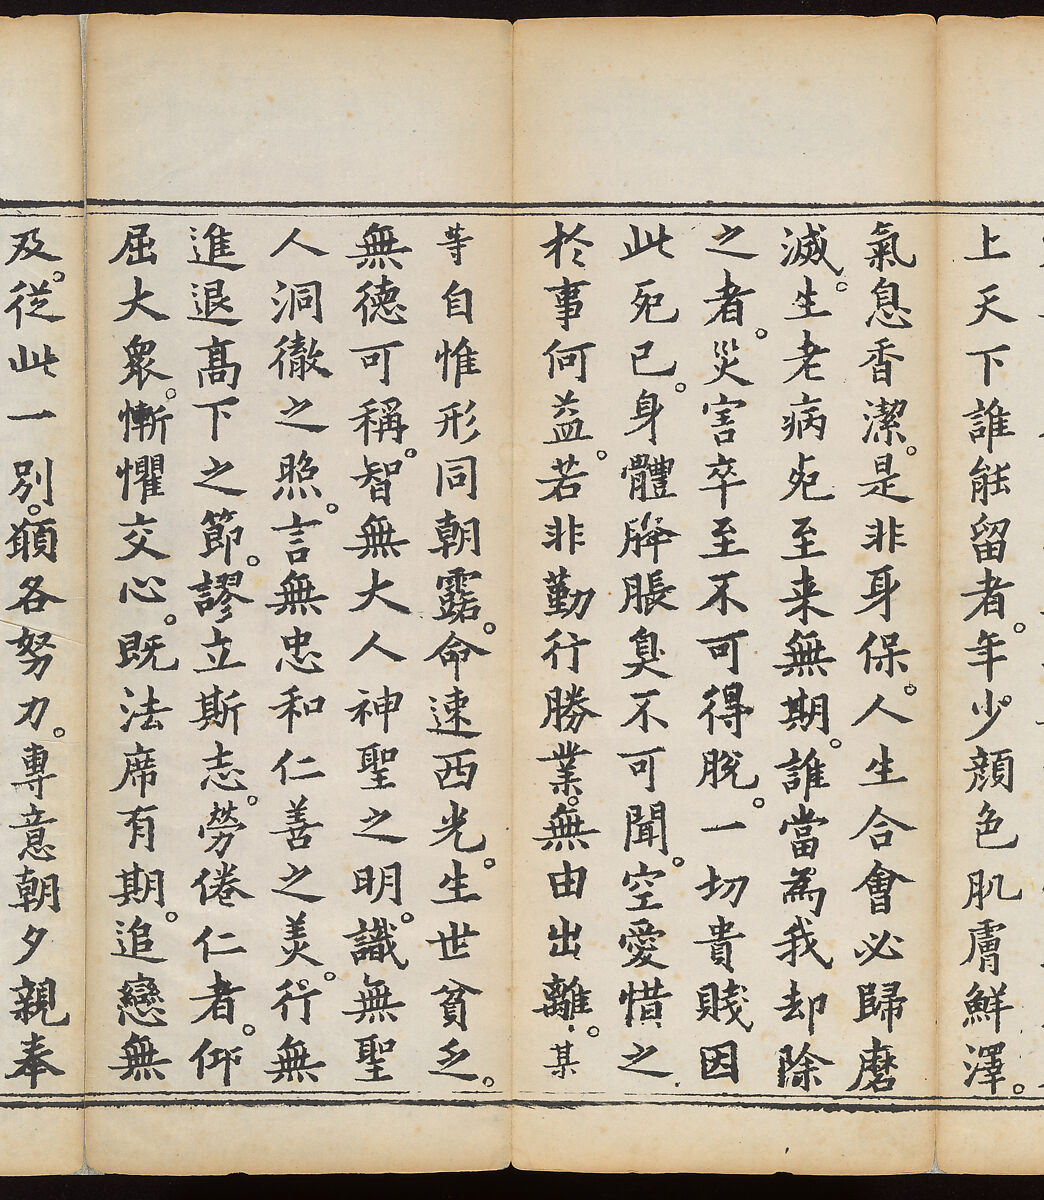 上天下誰能留者。年少顏色肌膚鮮澤。
氣息香潔。是非身保。人生合會必歸磨
滅。生老病死至来無期。誰當為我却除
之者。災害卒至不可得脫。一切貴賤因
此死已。身體膖脹臭不可聞。空愛惜之
於事何益。若非勤行勝業。無由出離。某
等自惟形同朝露。命速西光。生世貧乏。
無德可稱。智無大人神聖之明。識無聖
人洞徹之照。言無忠和仁善之美。行無
進退高下之節。謬立斯志。勞倦仁者。仰
屈大眾。慚懼交心。既法席有期。追戀無
及。從此一別。願各努力。專意朝夕親奉